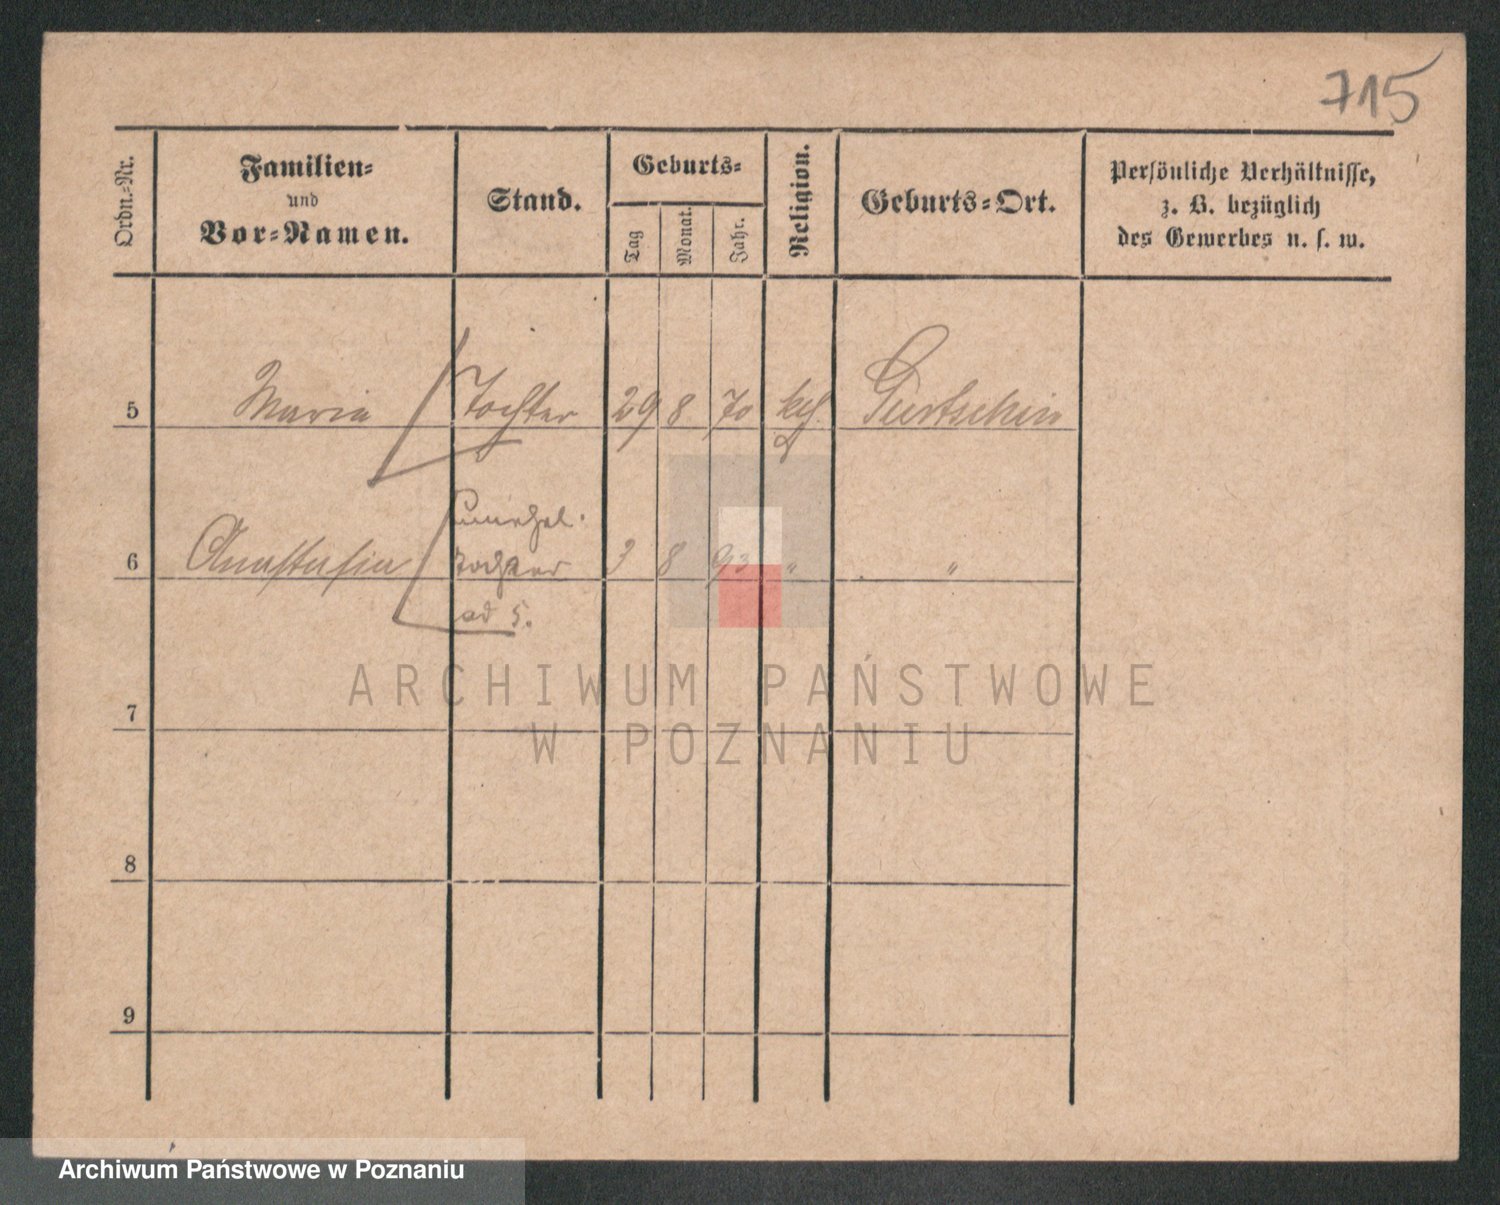 715
Ordn.-Nr.
Familien-
und
Vor-Namen.
Stand.
Geburts-
Tag
Monat.
Jahr.
Religion.
Geburts-Ort.
Persönliche Verhältnisse,
z. B. bezüglich
des Gewerbes u. s. w.
5 Maria Tochter 29 8 70 kath. Gurtschin
unehel.
6 Anastasia Tochter 3 8 93 " "
ad 5.
ARCHIWUM PAŃSTWOWE
W POZNANIU
7
8
9
Archiwum Państwowe w Poznaniu